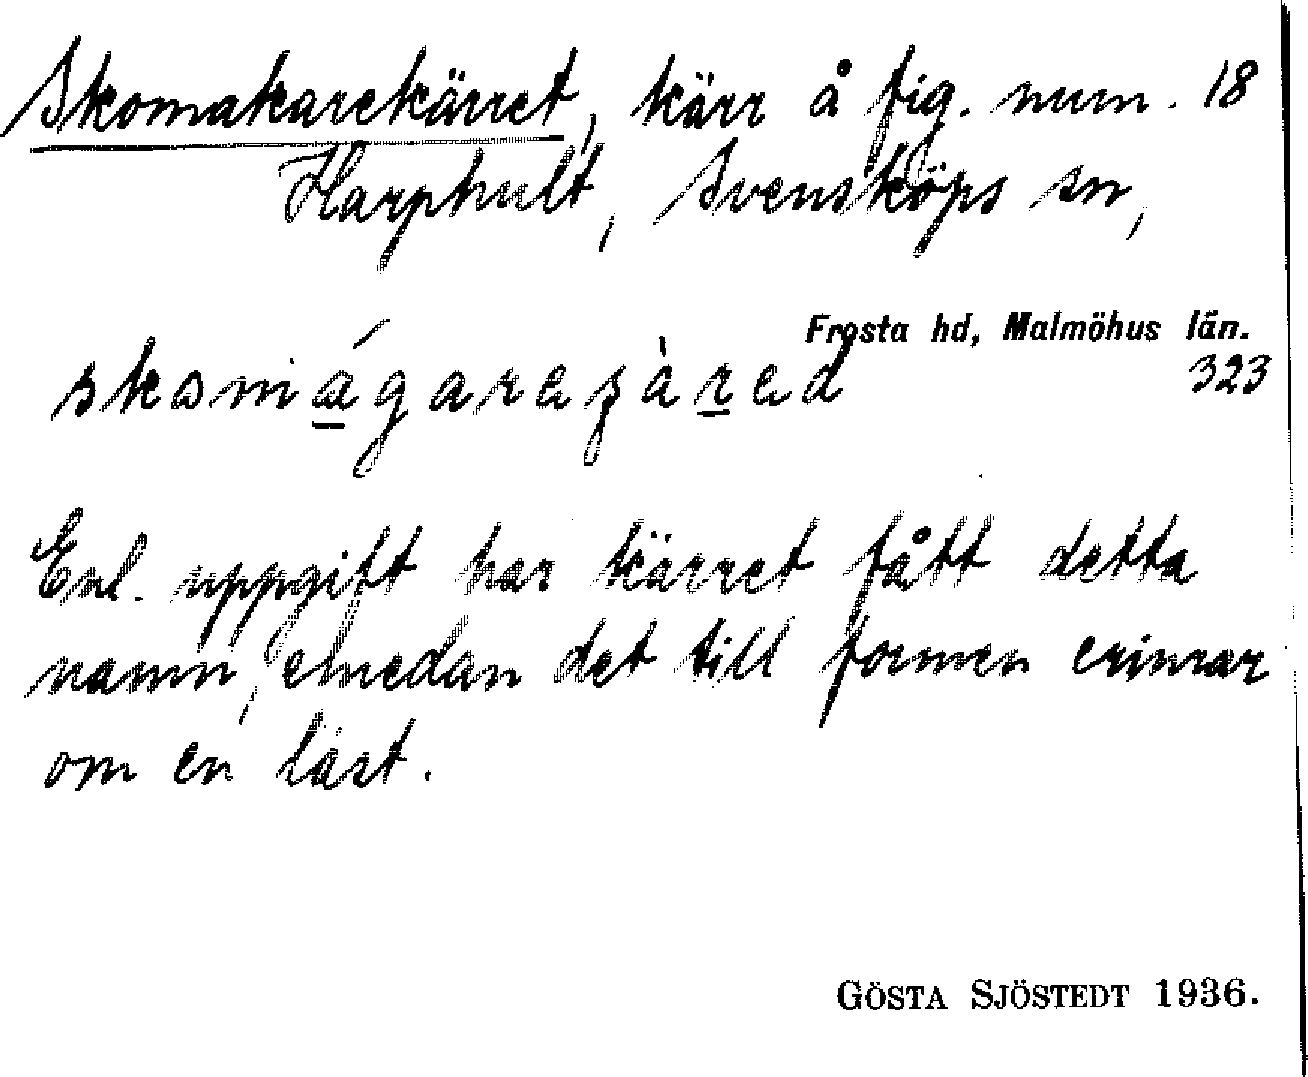 Skomakarekärret, kärr å fig. num. 18
Harphult, Svensköps sn,
Frosta hd, Malmöhus län.
323
Enl. uppgift har kärret fått detta
namn, emedan det till formen erinrar
om en läst.
GÖSTA SJÖSTEDT 1936.